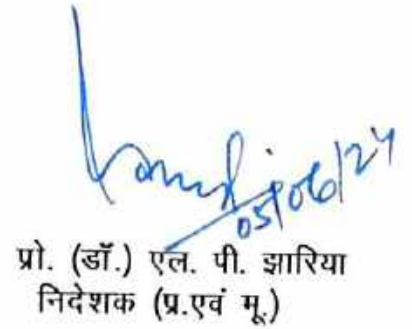 05/06/24
प्रो. (डॉ.) एल. पी. झारिया
निदेशक (प्र.एवं मू.)